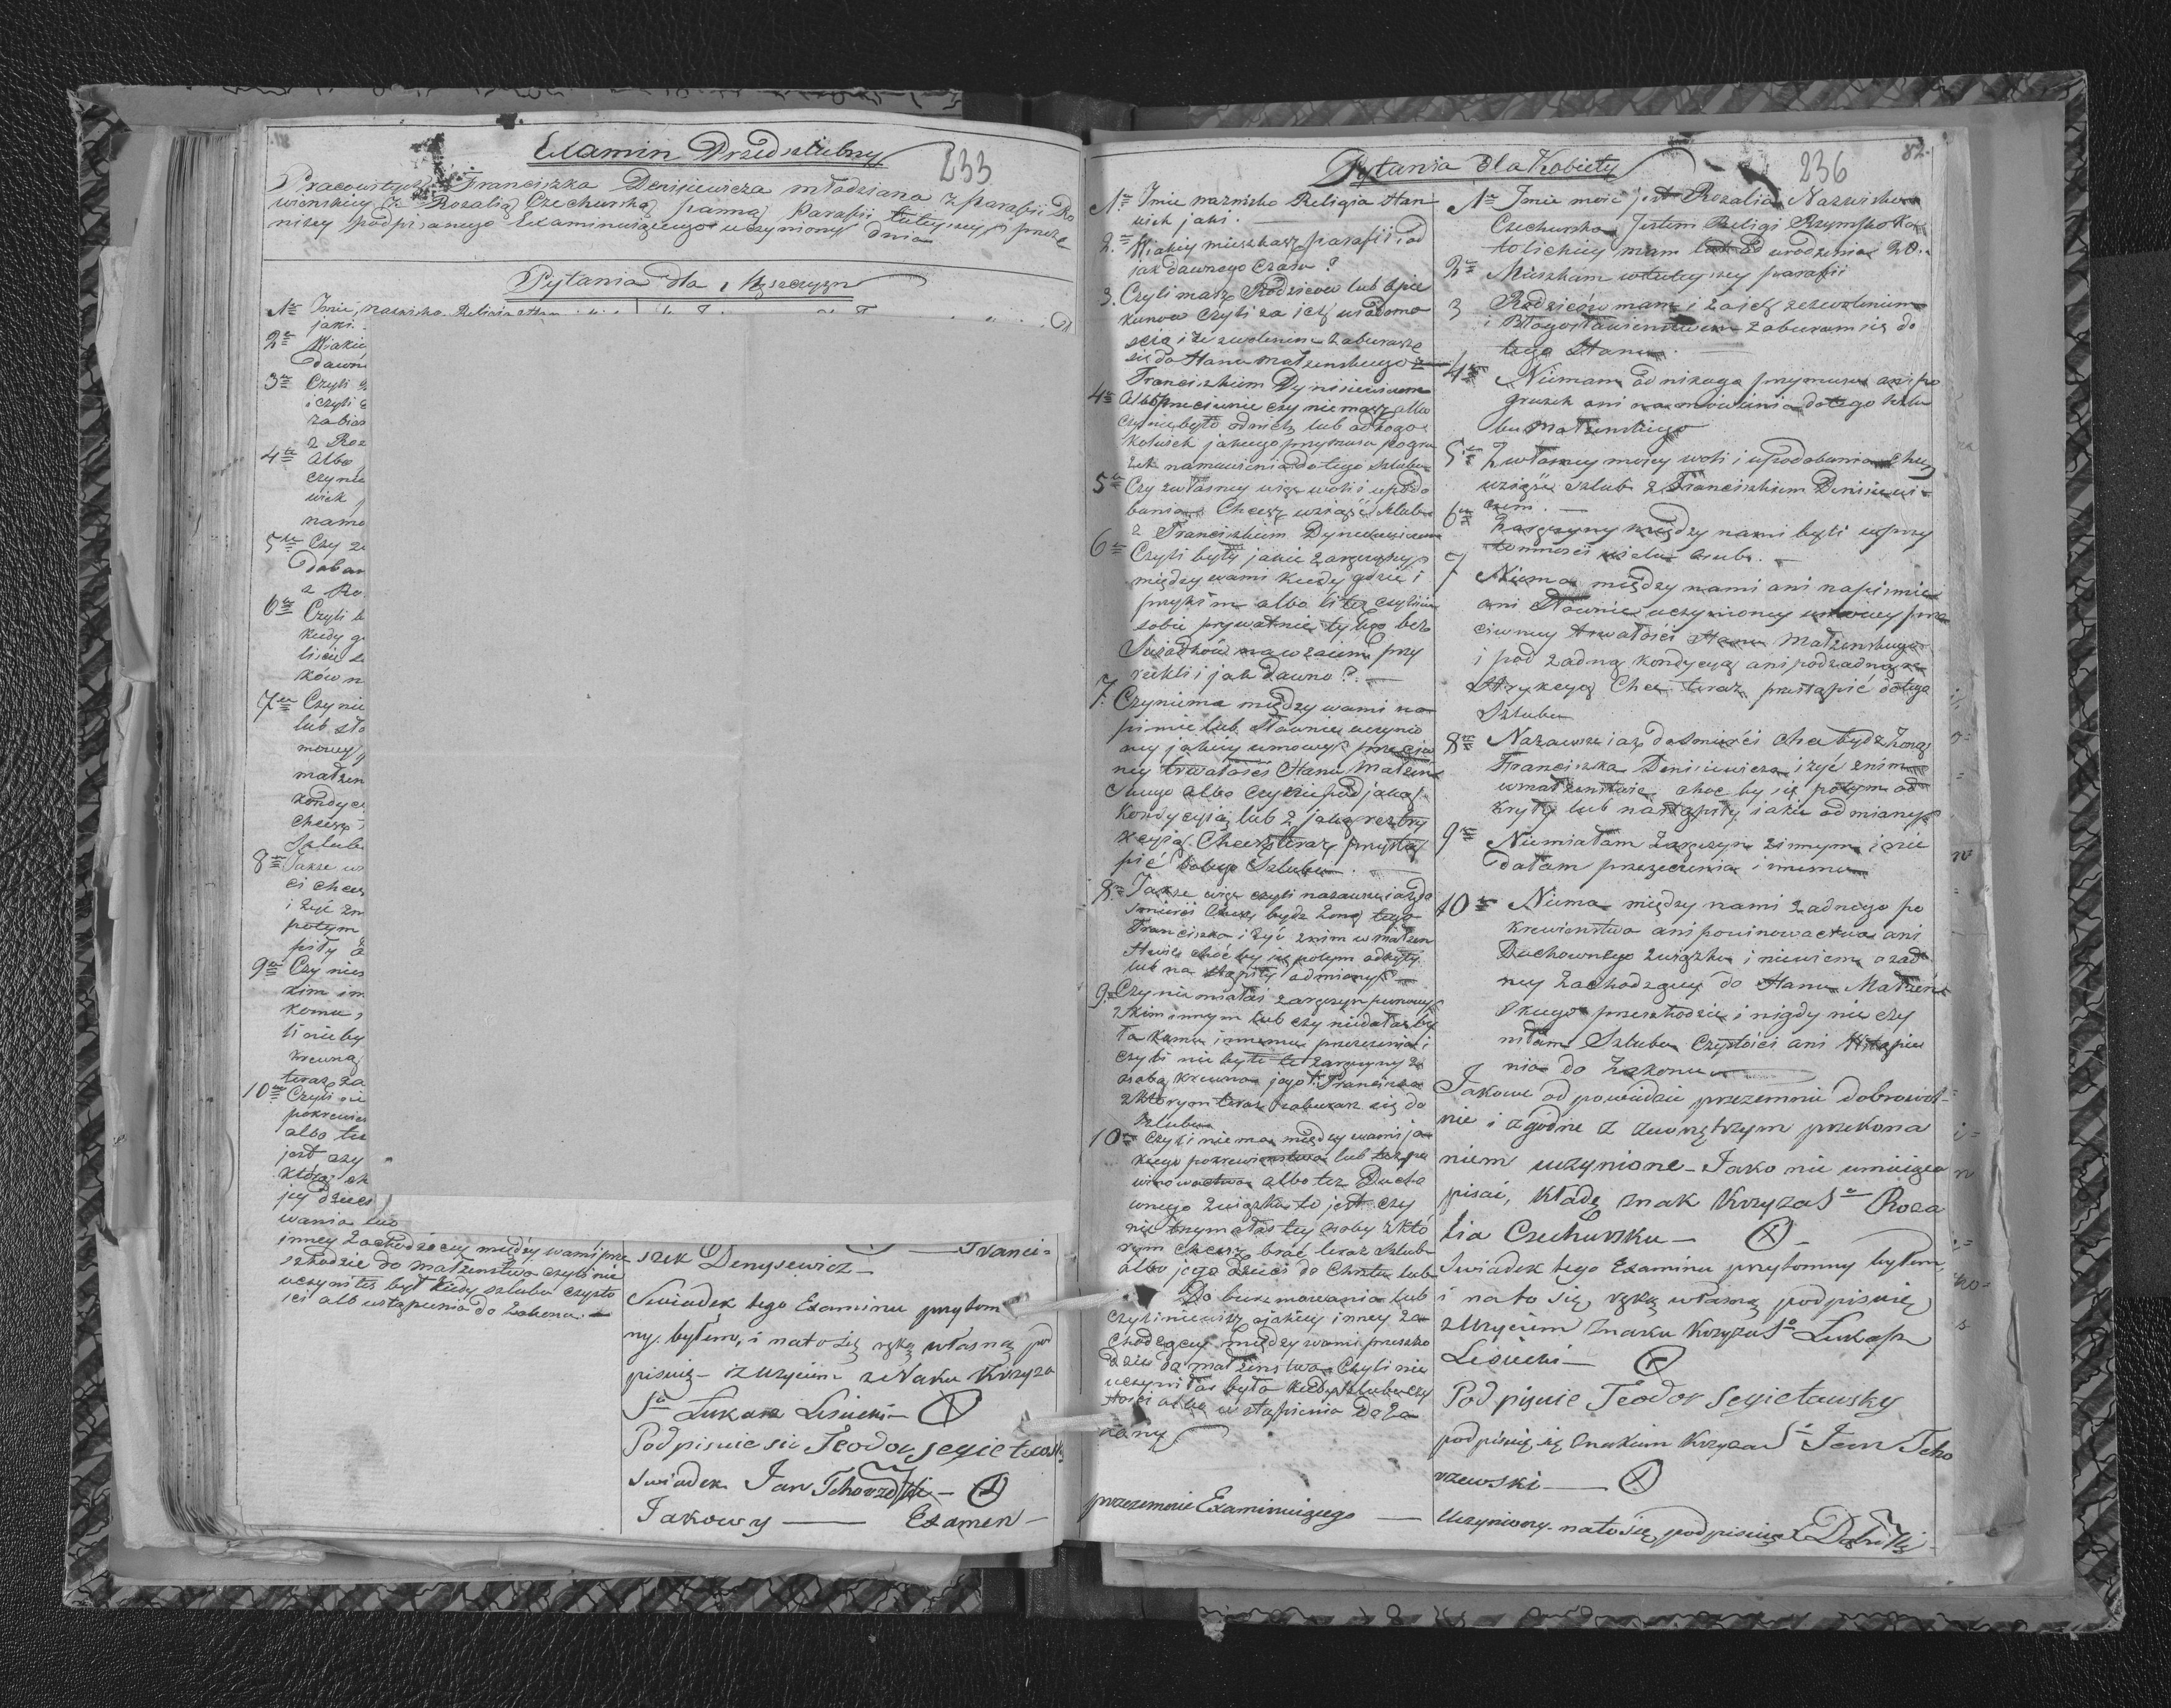 Examin Przedslubny
233
Pracowitych Franciszka Denisiewicza młodziana z parafii Ro
wienskiey z Rozalią Czechurską panną Parafii tuteyszey przez
niżey podpisanego Examinuiącego uczyniony dnia
Pytania dla Męszczyzn
1e Imie, Nazwisko Religia Stan
jaki.
2e Wiakie
dawn
3e Czyli
i czyli
zabier
z Roz
4te Albo
czynie
wiek
namo
5te Czy ze
doban
z Ro
6te Czyli b
kiedy g
liscie s
ków n
7me Czy nie
lub sło
mowy
małzen
kondyc
chcesz
Szlub
8me Takze w
ci chces
i żyć zn
potym
piły
9te Czy nies
kim in
komu
li nie by
krewną
teraz za
10te Czyli nie
pokrewie
albo te
jest czy
którą ch
jey dziec
wania lub
inney zachodzącey między wami prze
szkodzie do małzenstwa czyli nie
uczyniłes był kiedy szlubu czysto
sci alb wstąpienia do Zakonu. —
Franci=
szek Denysewicz —
Swiadek tego Examinu przytom
ny byłem, i nato się ręką własną pod
pisuię — z Użyciem znaku Krzyża
So Łukasz Lisiecki —
Podpisuie sie Teodor
swiadek Jan
Takowy — Examen —
Pytania dla Kobiety
236
82.
1e Imie nazwisko Religia Stan
wiek jaki.
2. Wiakiey mieszkasz parafii i od
jak dawnego czasu?
3. Czyli masz Rodziców lub Opie
kunow czyli za ich wiadomo
scią i ze zwoleniem zabierasz
się do Stanu małzenskiego z
Franciszkiem Dynisiewiczem
4te Albo przeciwnie czy niemasz albo
czy niebyło odnich lub odkogo
kolwiek jakiego przymusu pogru
zek namowienia do tego szlubu
5te Czy zwłasney więc woli i upodo
bania Chcesz wziąść szlub
z Franciszkiem
6te Czyli były jakie zaręczyny
między wami kiedy gdzie i
przykim albo li też czyliscie
sobie prywatnie tylko bez
Swiadków nawzaiem przy
rzekli i jak dawno? —
7. Czy niema między wami na
pismie lub słownie uczynio
ney jakiey umowy przeciw
ney trwałosci Stanu Małzeń
skiego albo czy nie pod jaką
kondycyią lub z jaką restry
kcyią Chcesz teraz przystą
pić do tego Szlubu. —
8me Takze więc czyli nazawsze iaż do
smierci Chcesz bydz żoną tego
Franciszka i żyć znim w małzen
stwie choć by się potym odkryły
lub na stąpiły odmiany? —
9te Czy nie miałas zaręczyn
zkim innym lub czy niedałas by
ła komu innemu przyrzeczenia i
czyli nie były te zaręczyny z
osobą krewną jego t. Franciszka
zktorym teraz zabierasz się do
szlubu
10te Czyli nie ma między wami ja
kiego pokrewienstwa lub też po
winowactwa albo też Ducho
wnego związku to jest czy
nie trzymałas tey osoby z któ
rym chcesz brać teraz szlub
albo jego dzieci do Chrztu lub
Do bierzmowania lub
czyli niewiesz o jakiey inney za
chodzącey między wami przeszko
dzie do małzenstwa Czyli nie
uczyniłas była kiedy szlubu czy
stosci albo wstąpienia do Za
konu
przezemnie Examinuiącego —
1e Imie moie jest Rozalia Nazwisko
Czechurska Jestem Religi Rzymsko Ka
tolickiey mam lat od urodzenia 20.
2e Mieszkam w tuteyszey parafii
3 Rodziców mam i za ich zezwoleniem
i Błogosławienstwem zabieram się do
tego Stanu. —
4te Niemam od nikogo przymusu ani po
gruzek ani na mowienia do tego szlu
bu Małzenskiego
5te Zwłasney moiey woli i upodobania chcę
wziąść szlub z Franciszkiem Denisiewi=
czem. —
6te Zaręczyny między nami były wprzy
tomnosci wielu osub. —
7 Niema między nami ani napismie
ani Słownie uczynioney umowy prze
ciwney trwałosci Stanu Małzenskiego
i pod żadną kondycyą ani podzadną re
strykcyą Chcę teraz przystąpić do tego
Szlubu
8me Nazawsze iaż do smierci chcę bydz żoną
Franciszka Denisiewicza i żyć znim
w małzenstwie choć by się potym od
kryły lub nastąpiły iakie odmiany
9te Niemiałam zaręczyn zinnym i nie
dałam przyrzeczenia innemu
10te Niema między nami żadnego po
krewienstwa ani powinowactwa ani
Duchownego związku i niewiem o żad
ney zachodzącey do Stanu Małzeń
skiego przeszkodzie i nigdy nie czy
niłam Szlubu Czystosci ani Wstąpie
nia do Zakonu
Takowe od powiedzie przezemnie dobrowol=
nie i zgodne z zewnętrzym przekona
niem uczynione — Jako nie umieiąca
pisać, kładę znak Krzyża So Roza
lia Czechurska —
Swiadek tego Examinu przytomny byłem,
i nato się ręką własną podpisuię
z Użyciem znaku Krzyża So Łukasz
Lisiecki —
Podpisuie Teodor
podpisuię się znakiem Krzyża So Jan Tcho
rzewski —
Uczyniony nato się podpisuię